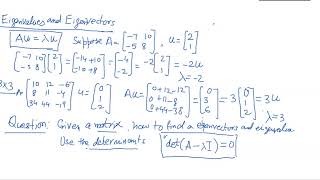 Eigenvalues and Eigenvectors
Au = λu Suppose A = [-7 10; -5 8], u = [2; 1]
[-7 10; -5 8] [2; 1] = [-14+10; -10+8] = [-4; -2] = -2 [2; 1] = -2u
λ = -2
3×3 A= [10 12 -6; 8 11 -4; 34 44 -19] [0; 1; 2] Au = [0+12-12; 0+11-8; 0+44-38] = [0; 3; 6] = 3 [0; 1; 2] = 3u
Question: Given a matrix, how to find a eigenvectors and eigenvalue
Use the determinants "det(A-λI) = 0"